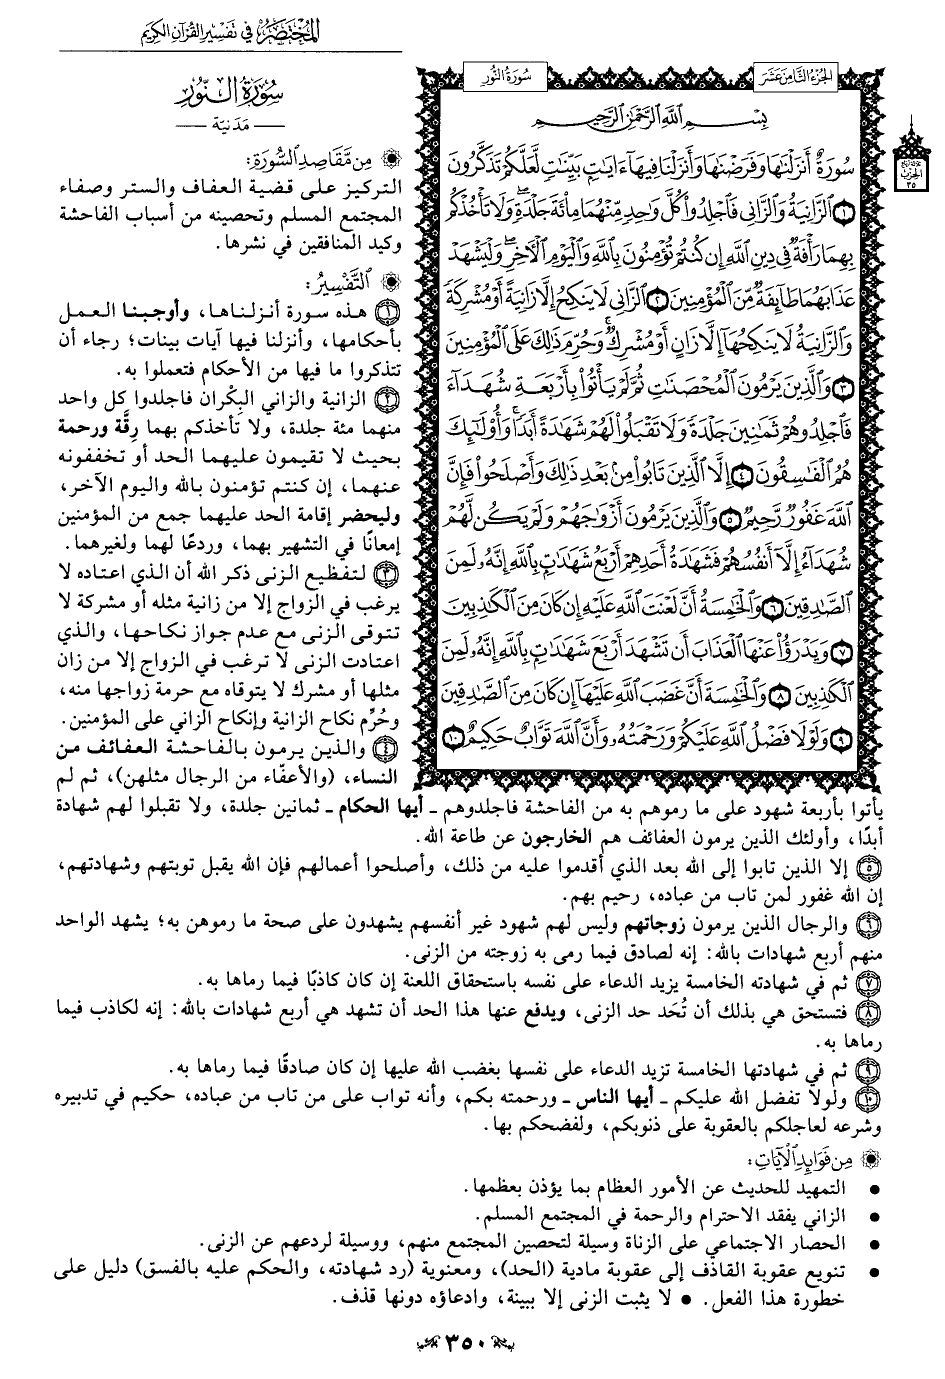 المختصر في تفسير القرآن الكريم
الجزء الثامن عشر
سورة النور
بِسْمِ اللَّهِ الرَّحْمَٰنِ الرَّحِيمِ
سُورَةٌ أَنزَلْنَٰهَا وَفَرَضْنَٰهَا وَأَنزَلْنَا فِيهَآ ءَايَٰتٍۭ بَيِّنَٰتٍ لَّعَلَّكُمْ تَذَكَّرُونَ
١ ٱلزَّانِيَةُ وَٱلزَّانِي فَٱجْلِدُوا۟ كُلَّ وَٰحِدٍ مِّنْهُمَا مِا۟ئَةَ جَلْدَةٍ وَلَا تَأْخُذْكُم
بِهِمَا رَأْفَةٌ فِي دِينِ ٱللَّهِ إِن كُنتُمْ تُؤْمِنُونَ بِٱللَّهِ وَٱلْيَوْمِ ٱلْءَاخِرِ وَلْيَشْهَدْ
عَذَابَهُمَا طَآئِفَةٌ مِّنَ ٱلْمُؤْمِنِينَ ٢ ٱلزَّانِي لَا يَنكِحُ إِلَّا زَانِيَةً أَوْ مُشْرِكَةً
وَٱلزَّانِيَةُ لَا يَنكِحُهَآ إِلَّا زَانٍ أَوْ مُشْرِكٌ وَحُرِّمَ ذَٰلِكَ عَلَى ٱلْمُؤْمِنِينَ
٣ وَٱلَّذِينَ يَرْمُونَ ٱلْمُحْصَنَٰتِ ثُمَّ لَمْ يَأْتُوا۟ بِأَرْبَعَةِ شُهَدَآءَ
فَٱجْلِدُوهُمْ ثَمَٰنِينَ جَلْدَةً وَلَا تَقْبَلُوا۟ لَهُمْ شَهَٰدَةً أَبَدًا وَأُو۟لَٰٓئِكَ
هُمُ ٱلْفَٰسِقُونَ ٤ إِلَّا ٱلَّذِينَ تَابُوا۟ مِنۢ بَعْدِ ذَٰلِكَ وَأَصْلَحُوا۟ فَإِنَّ
ٱللَّهَ غَفُورٌ رَّحِيمٌ ٥ وَٱلَّذِينَ يَرْمُونَ أَزْوَٰجَهُمْ وَلَمْ يَكُن لَّهُمْ
شُهَدَآءُ إِلَّآ أَنفُسُهُمْ فَشَهَٰدَةُ أَحَدِهِمْ أَرْبَعُ شَهَٰدَٰتٍۭ بِٱللَّهِ إِنَّهُۥ لَمِنَ
ٱلصَّٰدِقِينَ ٦ وَٱلْخَٰمِسَةُ أَنَّ لَعْنَتَ ٱللَّهِ عَلَيْهِ إِن كَانَ مِنَ ٱلْكَٰذِبِينَ
٧ وَيَدْرَؤُا۟ عَنْهَا ٱلْعَذَابَ أَن تَشْهَدَ أَرْبَعَ شَهَٰدَٰتٍۭ بِٱللَّهِ إِنَّهُۥ لَمِنَ
ٱلْكَٰذِبِينَ ٨ وَٱلْخَٰمِسَةَ أَنَّ غَضَبَ ٱللَّهِ عَلَيْهَآ إِن كَانَ مِنَ ٱلصَّٰدِقِينَ
٩ وَلَوْلَا فَضْلُ ٱللَّهِ عَلَيْكُمْ وَرَحْمَتُهُۥ وَأَنَّ ٱللَّهَ تَوَّابٌ حَكِيمٌ ١٠
الحزب
٣٥
سورة النور
— مدنية —
من مقاصد السورة:
التركيز على قضية العفاف والستر وصفاء
المجتمع المسلم وتحصينه من أسباب الفاحشة
وكيد المنافقين في نشرها.
التفسير:
١ هذه سورة أنزلناها، وأوجبنا العمل
بأحكامها، وأنزلنا فيها آيات بينات؛ رجاء أن
تتذكروا ما فيها من الأحكام فتعملوا به.
٢ الزانية والزاني البِكْران فاجلدوا كل واحد
منهما مئة جلدة، ولا تأخذكم بهما رِقَّة ورحمة
بحيث لا تقيمون عليهما الحد أو تخففونه
عنهما، إن كنتم تؤمنون بالله واليوم الآخر،
وليحضر إقامة الحد عليهما جمع من المؤمنين
إمعانًا في التشهير بهما، وردعًا لهما ولغيرهما.
٣ لتفظيع الزنى ذكر الله أن الذي اعتاده لا
يرغب في الزواج إلا من زانية مثله أو مشركة لا
تتوقى الزنى مع عدم جواز نكاحها، والذي
اعتادت الزنى لا ترغب في الزواج إلا من زان
مثلها أو مشرك لا يتوقاه مع حرمة زواجها منه،
وحُرِّم نكاح الزانية وإنكاح الزاني على المؤمنين.
٤ والذين يرمون بالفاحشة العفائف من
النساء، (والأعفّاء من الرجال مثلهن)، ثم لم
يأتوا بأربعة شهود على ما رموهم به من الفاحشة فاجلدوهم ـ أيها الحكام ـ ثمانين جلدة، ولا تقبلوا لهم شهادة
أبدًا، وأولئك الذين يرمون العفائف هم الخارجون عن طاعة الله.
٥ إلا الذين تابوا إلى الله بعد الذي أقدموا عليه من ذلك، وأصلحوا أعمالهم فإن الله يقبل توبتهم وشهادتهم،
إن الله غفور لمن تاب من عباده، رحيم بهم.
٦ والرجال الذين يرمون زوجاتهم وليس لهم شهود غير أنفسهم يشهدون على صحة ما رموهن به؛ يشهد الواحد
منهم أربع شهادات بالله: إنه لصادق فيما رمى به زوجته من الزنى.
٧ ثم في شهادته الخامسة يزيد الدعاء على نفسه باستحقاق اللعنة إن كان كاذبًا فيما رماها به.
٨ فتستحق هي بذلك أن تُحَد حد الزنى، ويدفع عنها هذا الحد أن تشهد هي أربع شهادات بالله: إنه لكاذب فيما
رماها به.
٩ ثم في شهادتها الخامسة تزيد الدعاء على نفسها بغضب الله عليها إن كان صادقًا فيما رماها به.
١٠ ولولا تفضل الله عليكم ـ أيها الناس ـ ورحمته بكم، وأنه تواب على من تاب من عباده، حكيم في تدبيره
وشرعه لعاجلكم بالعقوبة على ذنوبكم، ولفضحكم بها.
من فوائد الآيات:
• التمهيد للحديث عن الأمور العظام بما يؤذن بعظمها.
• الزاني يفقد الاحترام والرحمة في المجتمع المسلم.
• الحصار الاجتماعي على الزناة وسيلة لتحصين المجتمع منهم، ووسيلة لردعهم عن الزنى.
• تنويع عقوبة القاذف إلى عقوبة مادية (الحد)، ومعنوية (رد شهادته، والحكم عليه بالفسق) دليل على
خطورة هذا الفعل. • لا يثبت الزنى إلا ببينة، وادعاؤه دونها قذف.
٣٥٠